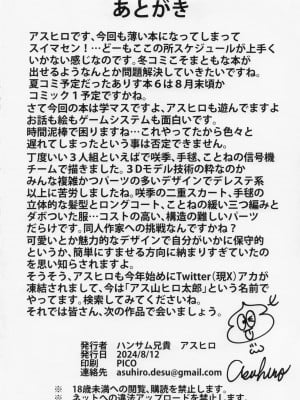 あとがき
アスヒロです、今回も薄い本になってしまって
スイマセン！…どーもここの所スケジュールが上手く
いかない感じなのです。冬コミこそまともな本が
出せるようなんとか問題解決していきたいですね。
夏コミ予定だったありす本6は8月末頃か
コミック1予定ですかね。
さて今回の本は学マスですよ、アスヒロも遊んですますよ
お話も絵もゲームシステムも面白いです。
時間泥棒で困りますね…これやってたから色々と
遅れてしまったという事は否定できません。
丁度いい3人組といえば咲季、手毬、ことねの信号機
チームで描きました。3Dモデル技術の粋なのか
みんな複雑かつパーツの多いデザインでデレステ系
以上に苦労しましたね。咲季の二重スカート、手毬の
立体的な髪型とロングコート、ことねの緩い三つ編みと
ダボついた服…コストの高い、構造の難しいパーツ
だらけです。同人作家への挑戦なんですかね？
可愛いとか魅力的なデザインで自分がいかに保守的
というか、簡単にすませる方向に納まりすぎていたのか
を思い知らされますよ。
そうそう、アスヒロも今年始めにTwitter（現X）アカが
凍結されまして、今は「アス山ヒロ太郎」という名前で
やってます。検索してみてくださいね。
それでは皆さん、次の作品で会いましょう。
発行者 ハンサム兄貴 アスヒロ
発行日 2024/8/12
印刷 PICO
連絡先 asuhiro.desu@gmail.com
Asuhiro
※ 18歳未満への閲覧、購読を禁止します。
※ ネットへの違法アップロードを禁止します。